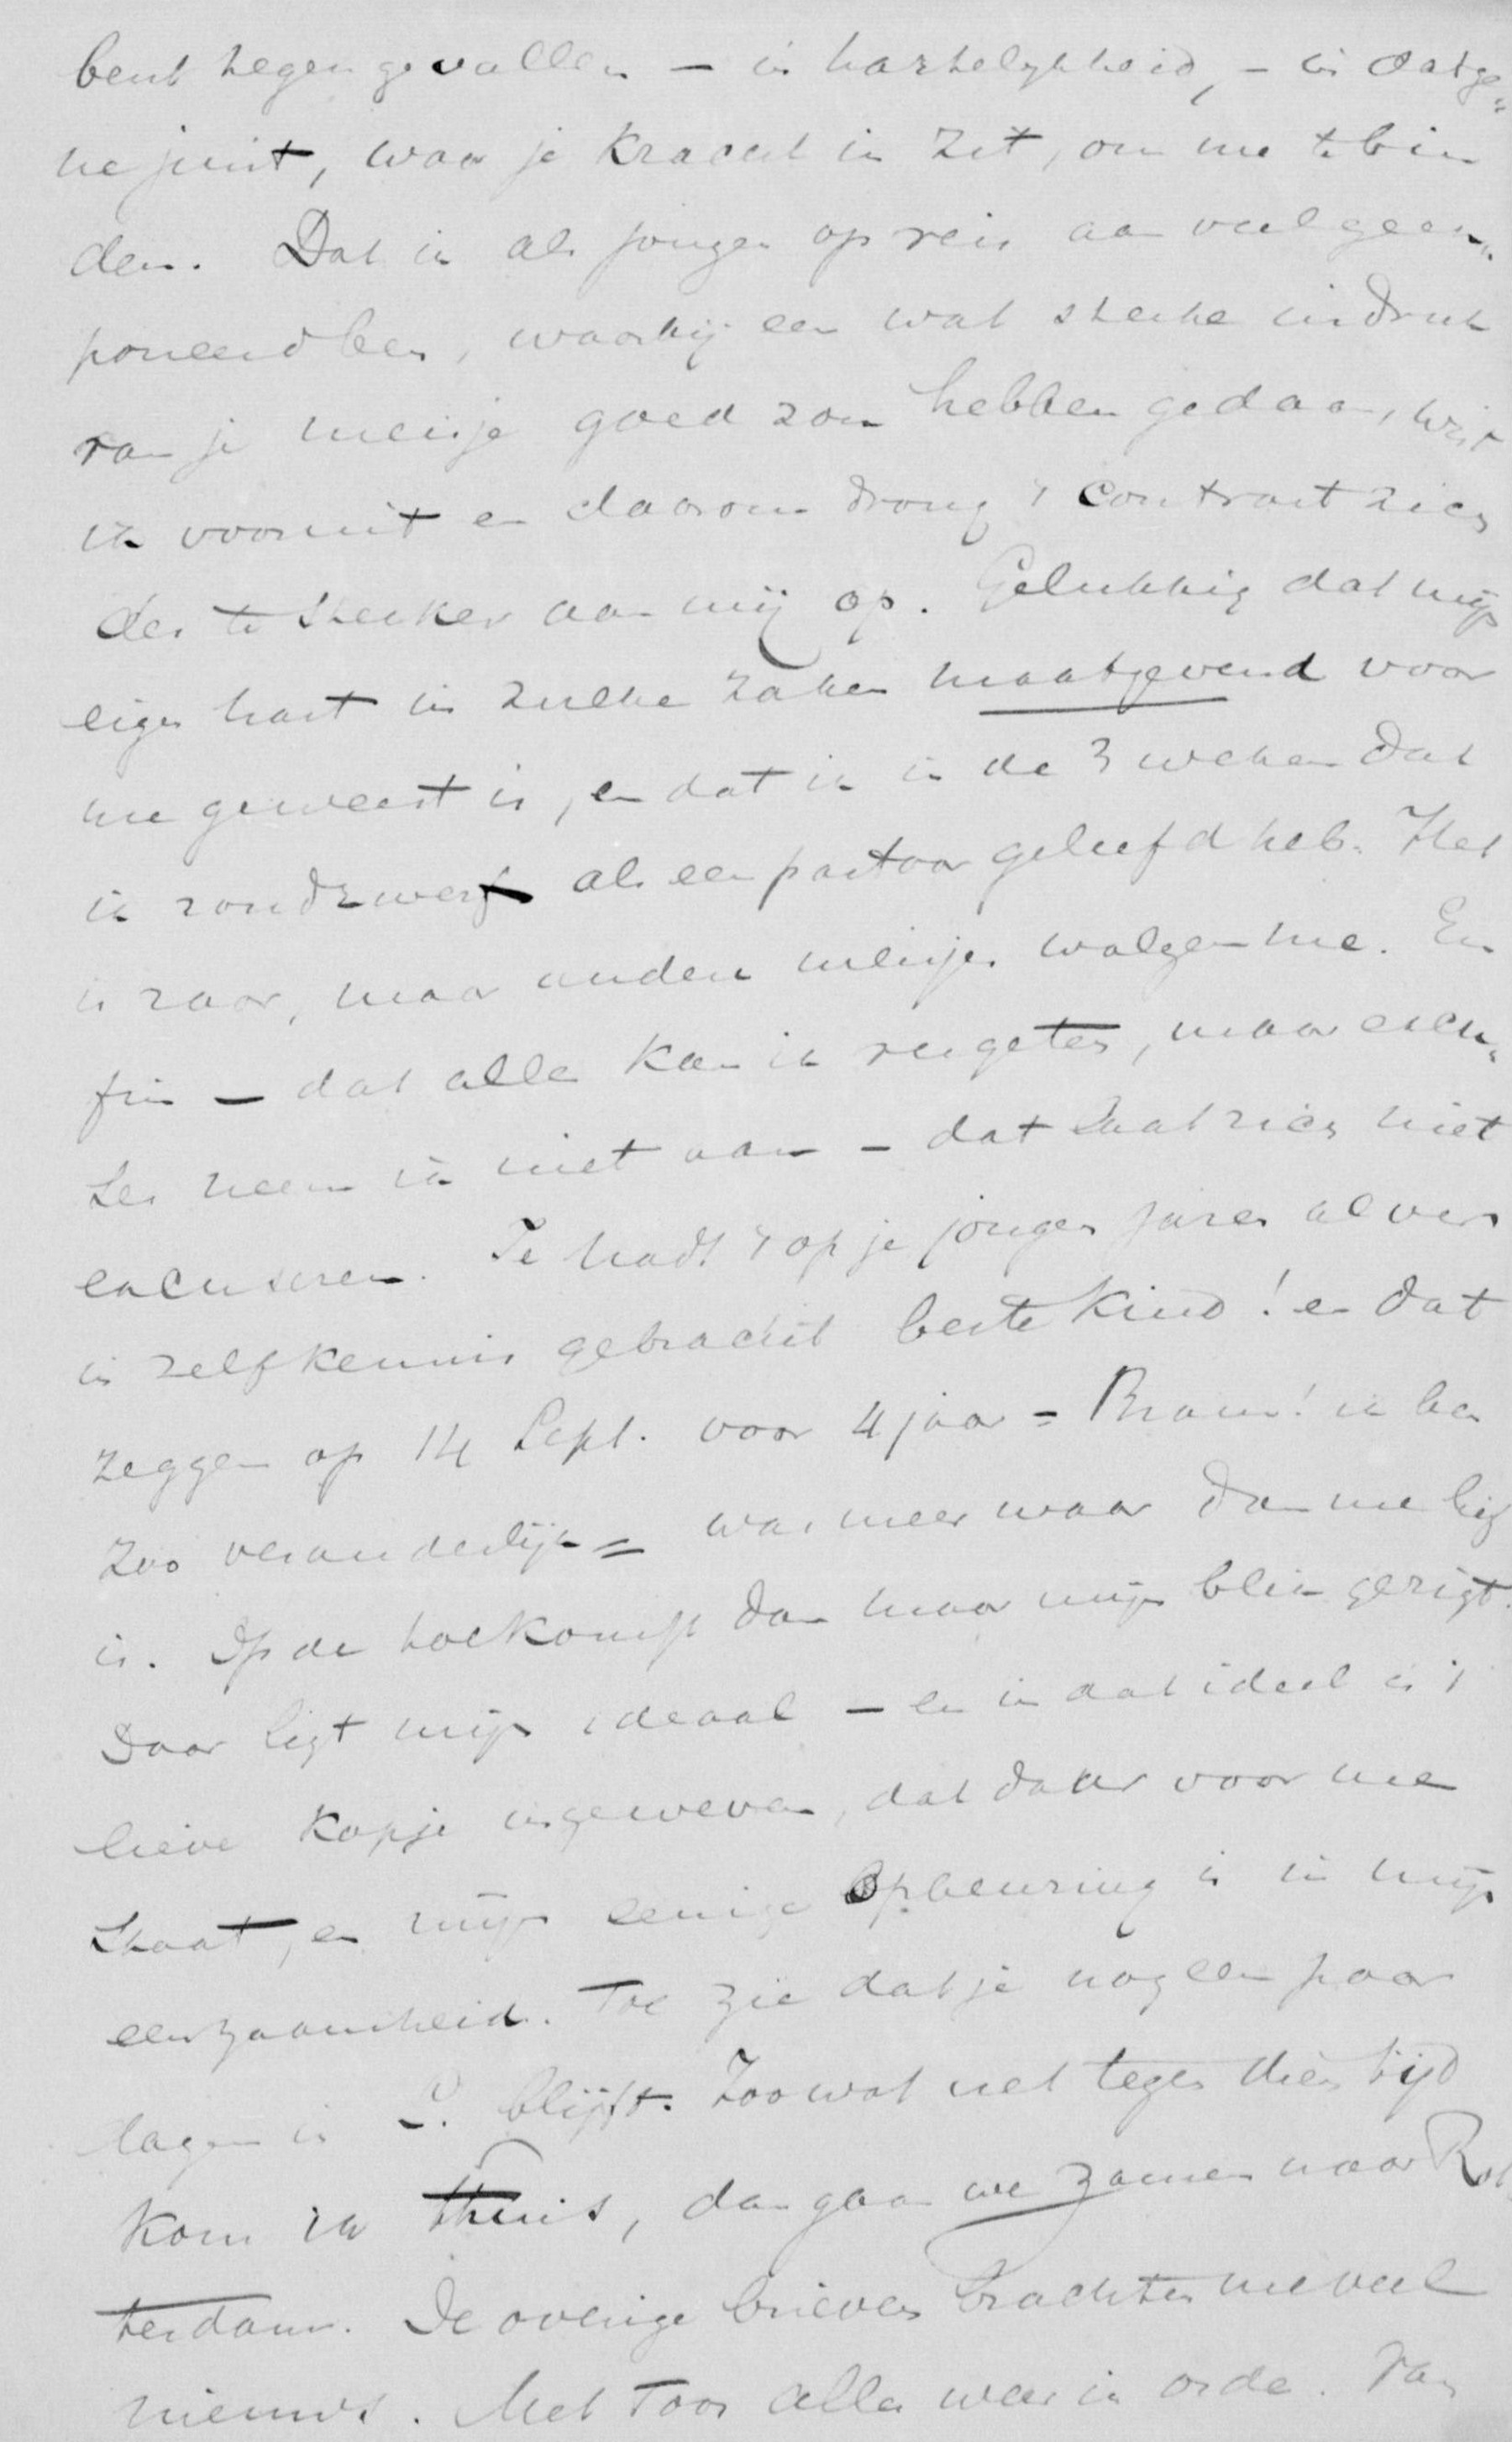 bent tegengevallen – in hartelykheid, – in datge=
ne juist, waar je kracht in zit, om me te bin
den. Dat ik als jongen op reis aan veel geex=
poneerd ben, waarbij een wat sterke indruk
van je meisje goed zou hebben gedaan, wist
ik vooruit en daarom drong 't contrast zich
des te sterker aan mij op. Gelukkig dat mijn
eigen hart in zulke zaken maatgevend voor
me geweest is, en dat ik in de 3 weken dat
ik rondzwerf als een pastoor geleefd heb. Het
is raar, maar andere meisjes walgen me. En
fin – dat alles kan ik vergeten, maar excu=
ses neem ik niet aan – dat laat zich niet
excuseren. Je hadt 't op je jonge jaren al ver
in zelfkennis gebracht beste kind! en dat
zeggen op 14 Sept. voor 4 jaar = Bram! ik ben
zoo veranderlijk = was meer waar dan me lief
is. Op de toekomst dan maar mijn blik gerigt.
Daar ligt mijn ideaal – en in dat ideal is 't
lieve kopje ingeweven, dat daar voor me
staat, en mijn eenige opbeuring is in mijn
eenzaamheid. Toe zie dat je nog een paar
dagen in L. blijft. Zoo wat net tegen dien tijd
kom ik thuis, dan gaan we zamen naar Rot
terdam. De overige brieven brachten me veel
nieuws. Met Toos alles weer in orde. Van